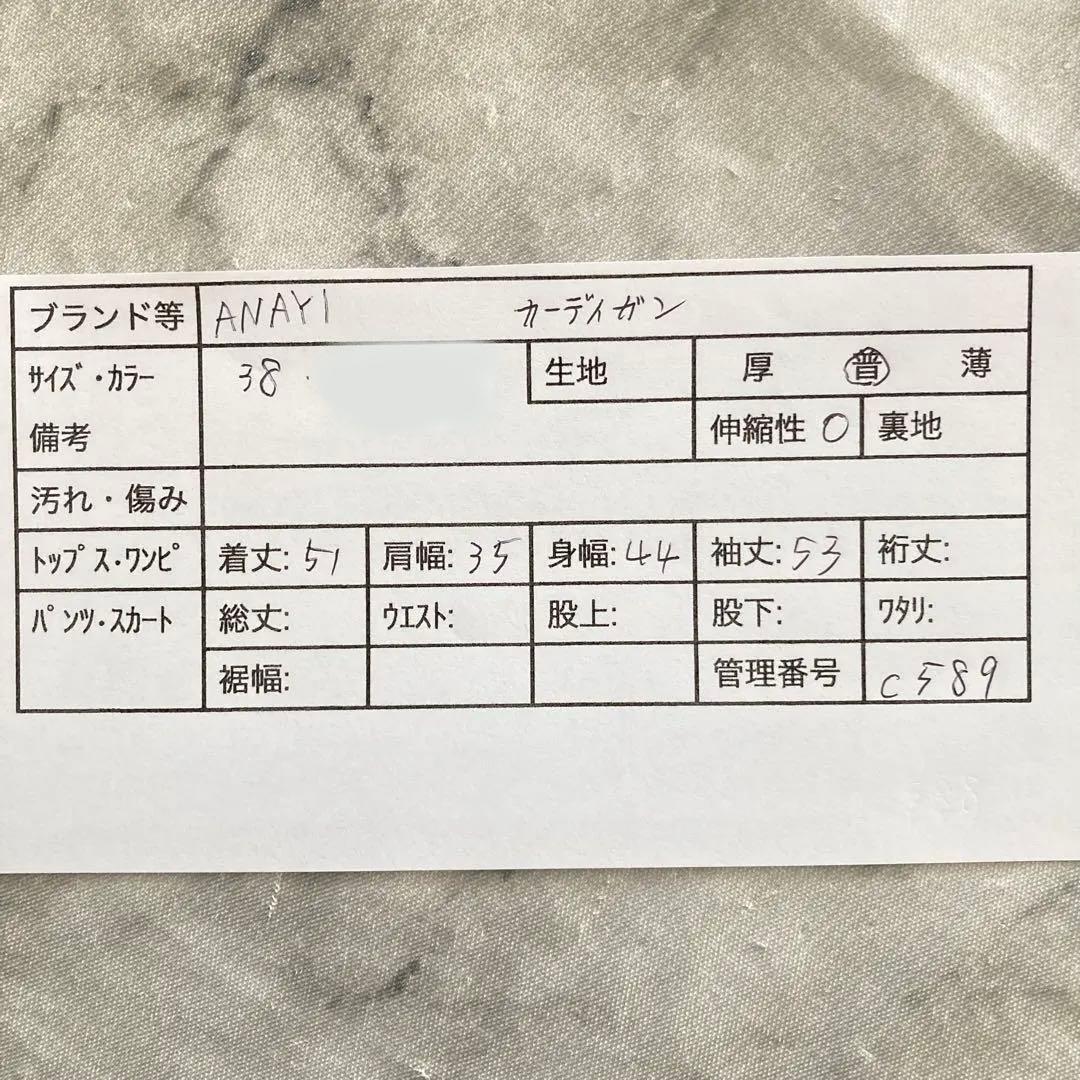 ブランド等 ANAYI カーディガン
サイズ・カラー 38 生地 厚 普 薄
備考 伸縮性 〇 裏地
汚れ・傷み
トップス・ワンピ 着丈: 51 肩幅: 35 身幅: 44 袖丈: 53 裄丈:
パンツ・スカート 総丈: ウエスト: 股上: 股下: ワタリ:
裾幅: 管理番号 c589